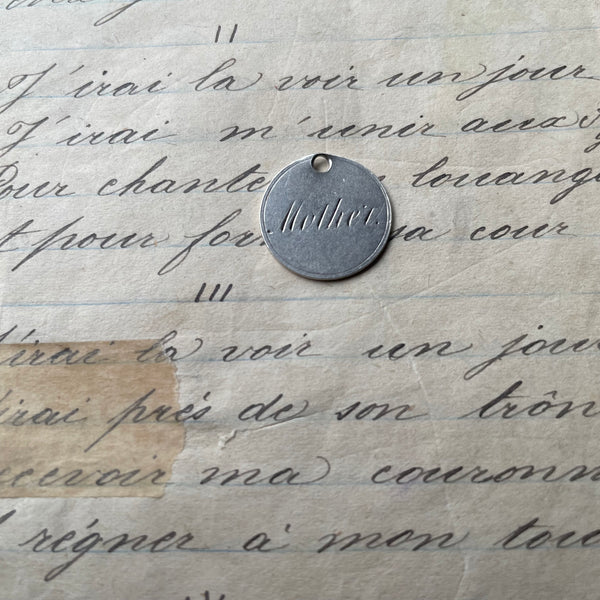 II
J'irai la voir un jour
J'irai m'unir aux
Pour chante louang
pour for sa cour
Mother.
III
J'irai la voir un jou
J'irai prés de son trôn
ecevoir ma couronn
régner à mon tou